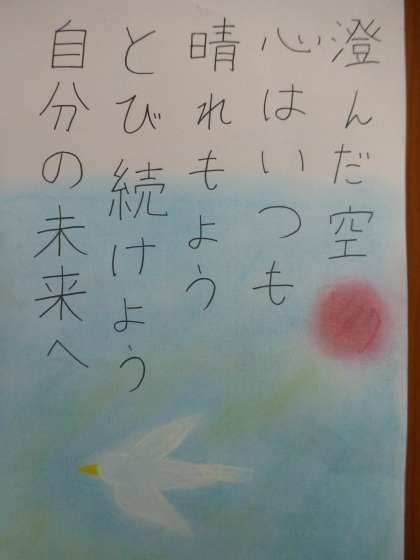 澄んだ空
心はいつも
晴れもよう
とび続けよう
自分の未来へ